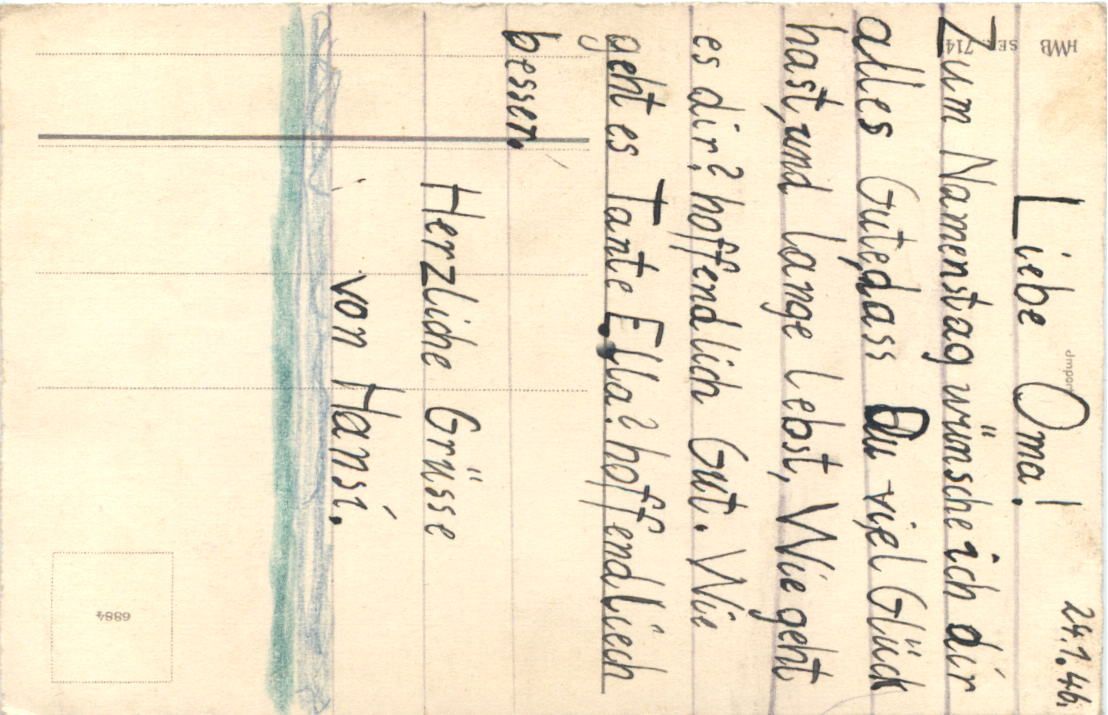 24.1.46.
Liebe Oma!
Zum Namenstag wünsche ich dir
alles Gute, dass Du viel Glück
hast, und lange lebst, Wie geht
es dir? hoffendlich Gut. Wie
geht es Tante Ella? hoffendliech
besser.
Herzliche Grüsse
von Hansi.
HWB SER. 714
Import
6884